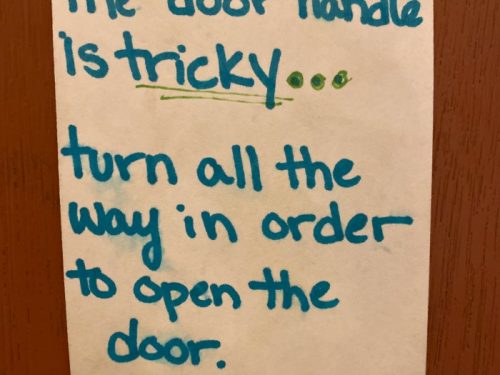 The door handle
is tricky...
turn all the
way in order
to open the
door.